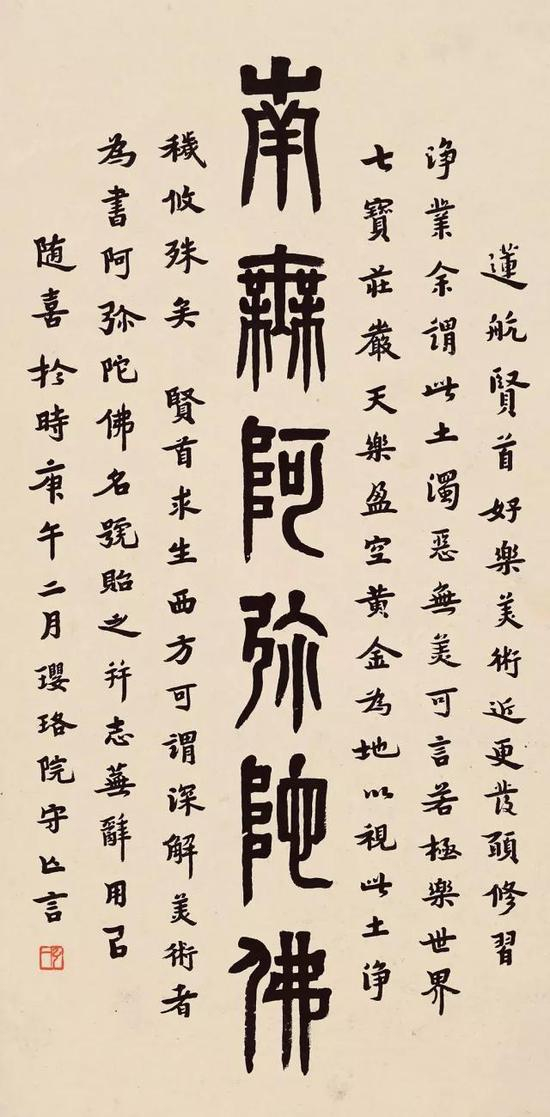 蓮航賢首好樂美術近更發願修習
浄業余謂此土濁惡無美可言若極樂世界
七寶莊嚴天樂盈空黃金為地以視此土浄
南無阿弥陀佛
穢攸殊矣 賢首求生西方可謂深解美術者
為書阿弥陀佛名號貽之并志蕪辭用㠯
随喜扵時庚午二月瓔珞院守亡言